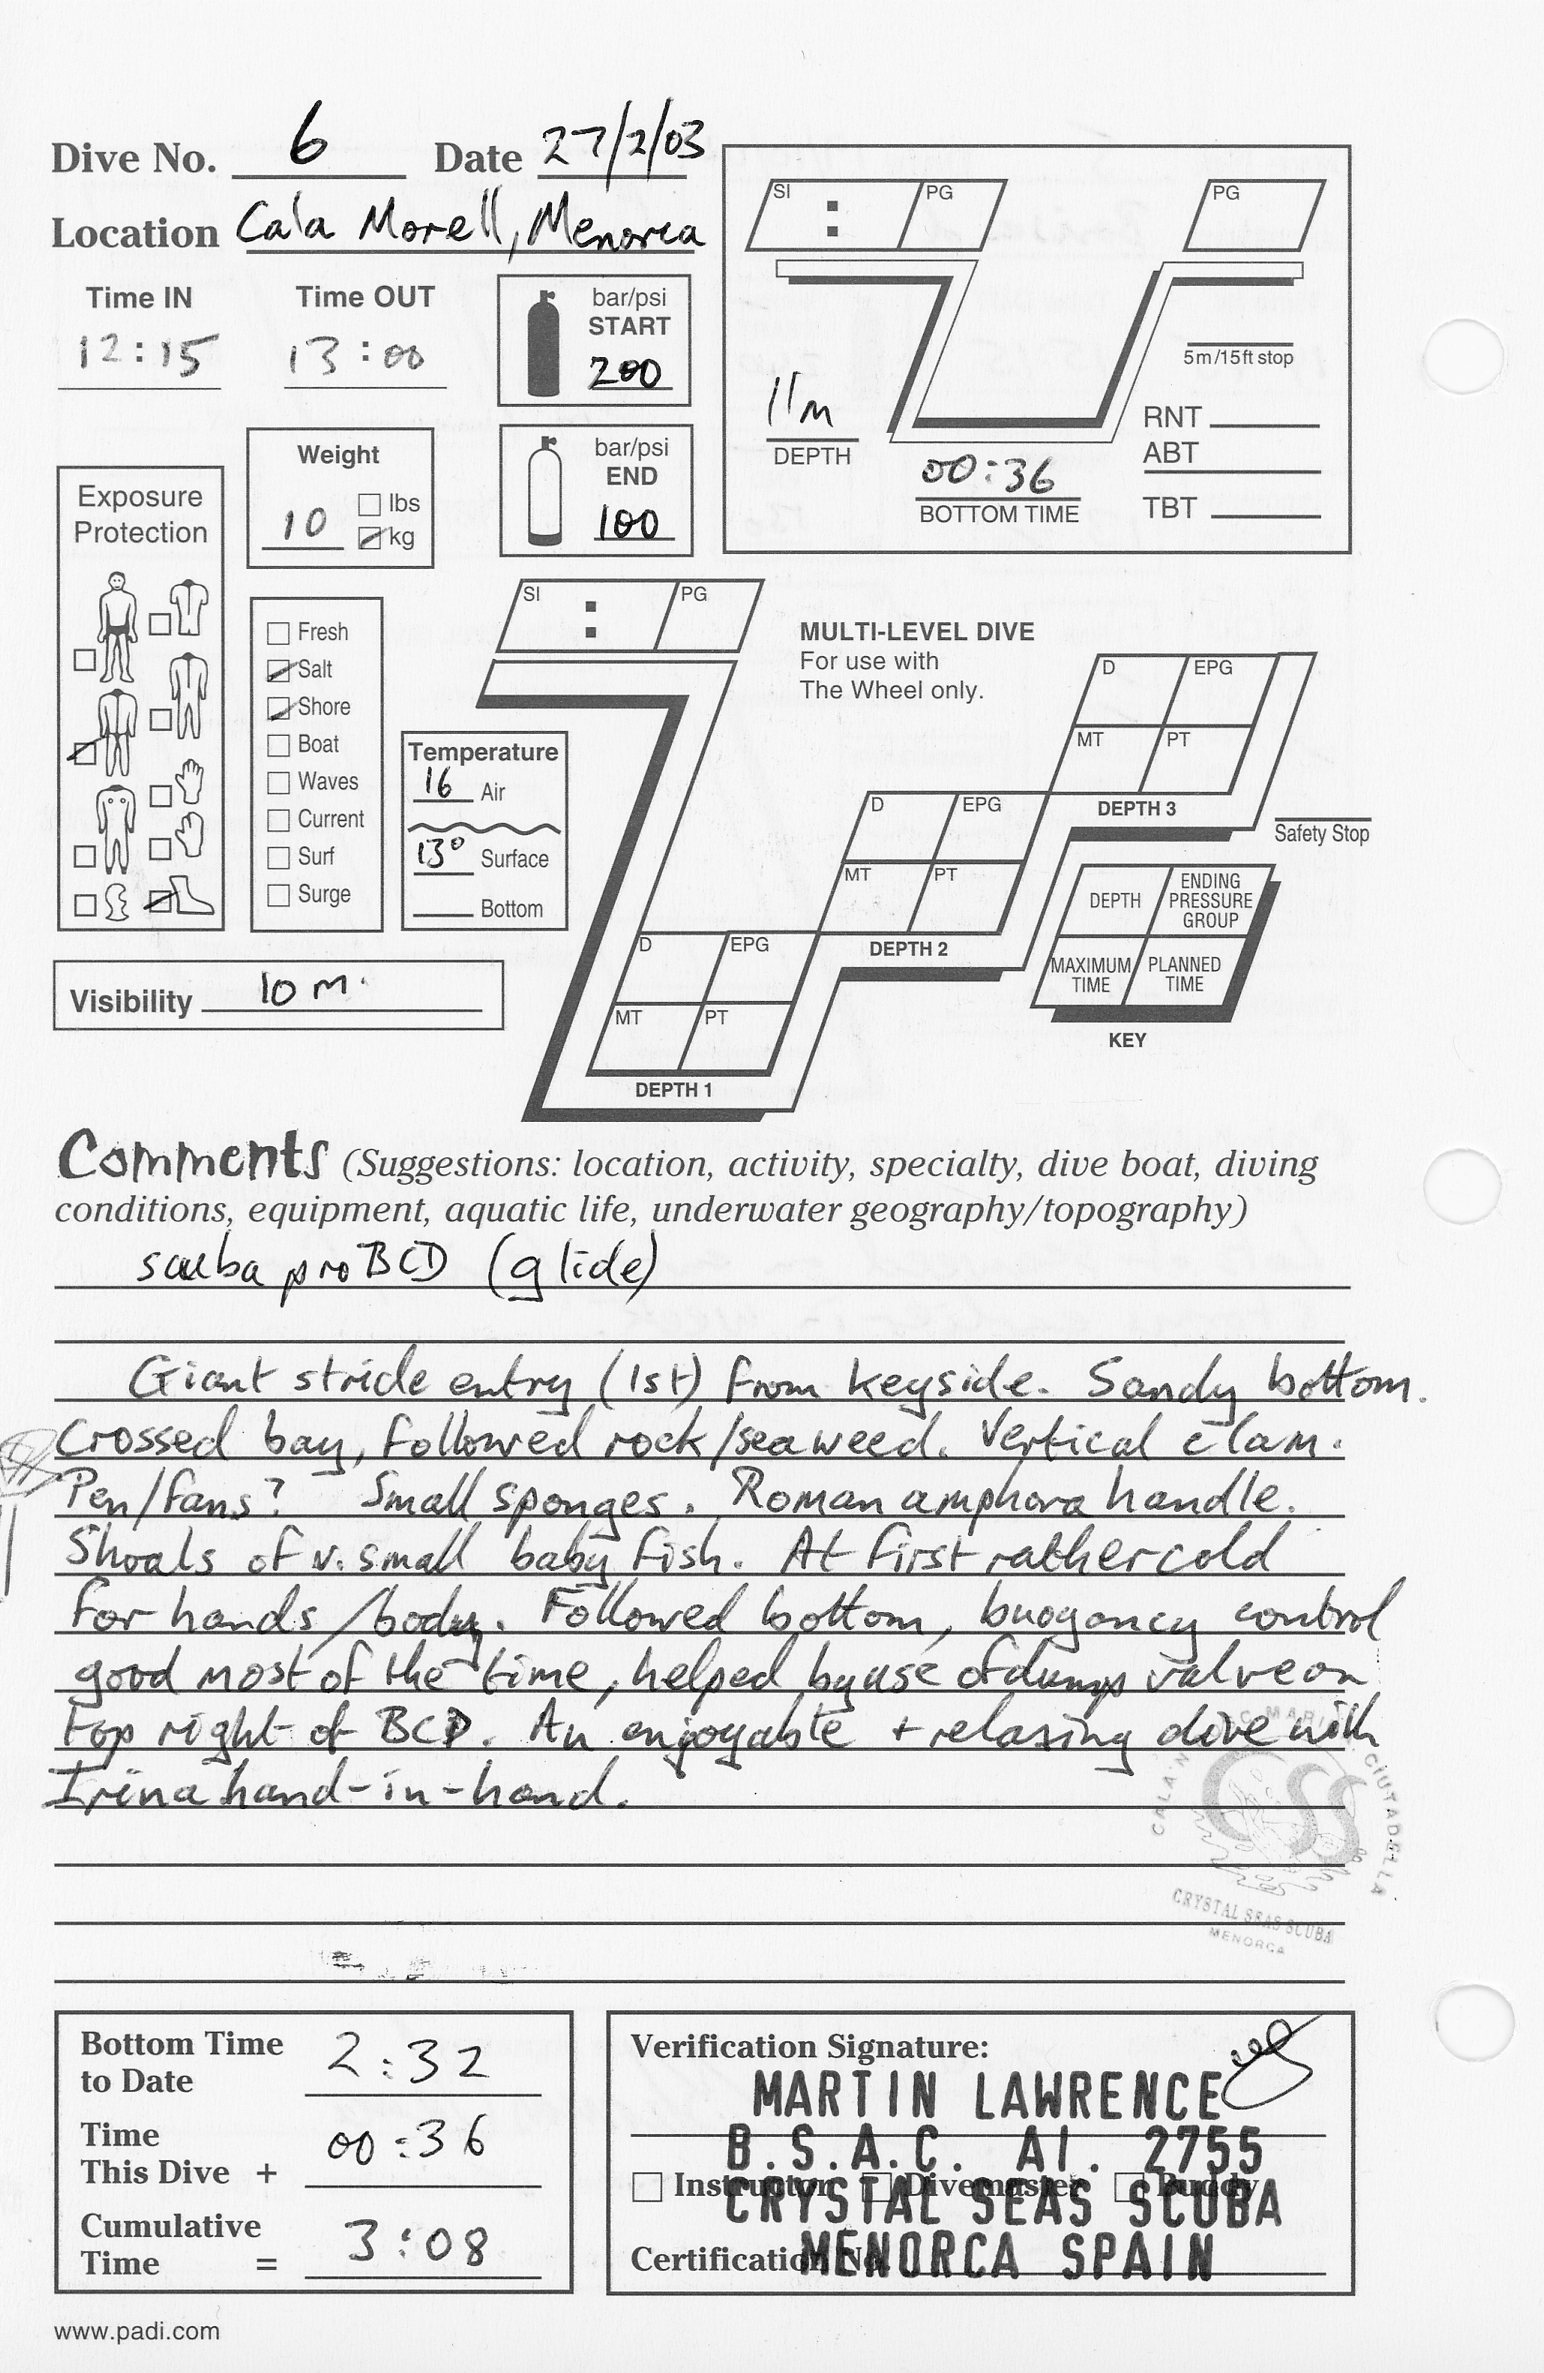 Dive No. 6 Date 27/2/03
Location Cala Morell, Menorca
Time IN Time OUT
12:15 13:00
bar/psi
START
200
bar/psi
END
100
Weight
lbs
10 kg
Exposure
Protection
Fresh
Salt
Shore
Boat
Waves
Current
Surf
Surge
Temperature
16 Air
13° Surface
Bottom
Visibility 10 m.
SI : PG PG
5m/15ft stop
11m
DEPTH
00:36
BOTTOM TIME
RNT
ABT
TBT
SI : PG
MULTI-LEVEL DIVE
For use with
The Wheel only.
D EPG
MT PT
DEPTH 3
D EPG
MT PT
DEPTH 2
D EPG
MT PT
DEPTH 1
Safety Stop
DEPTH ENDING PRESSURE GROUP
MAXIMUM TIME PLANNED TIME
KEY
Comments (Suggestions: location, activity, specialty, dive boat, diving
conditions, equipment, aquatic life, underwater geography/topography)
scuba pro BCD (glide)
Giant stride entry (1st) from keyside. Sandy bottom.
Crossed bay, followed rock/seaweed. Vertical clam.
Pen/fans? Small sponges. Roman amphora handle.
Shoals of v. small baby fish. At first rather cold
for hands/body. Followed bottom, buoyancy control
good most of the time, helped by use of dump valve on
top right of BCD. An enjoyable + relaxing dive with
Irina hand-in-hand.
CIUTADELLA
CSS
CRYSTAL SEAS SCUBA
MENORCA
Bottom Time
to Date 2:32
Time
This Dive + 00:36
Cumulative
Time = 3:08
Verification Signature:
MARTIN LAWRENCE
B.S.A.C. AI. 2755
Instructor Divemaster Buddy
CRYSTAL SEAS SCUBA
Certification No.
MENORCA SPAIN
www.padi.com